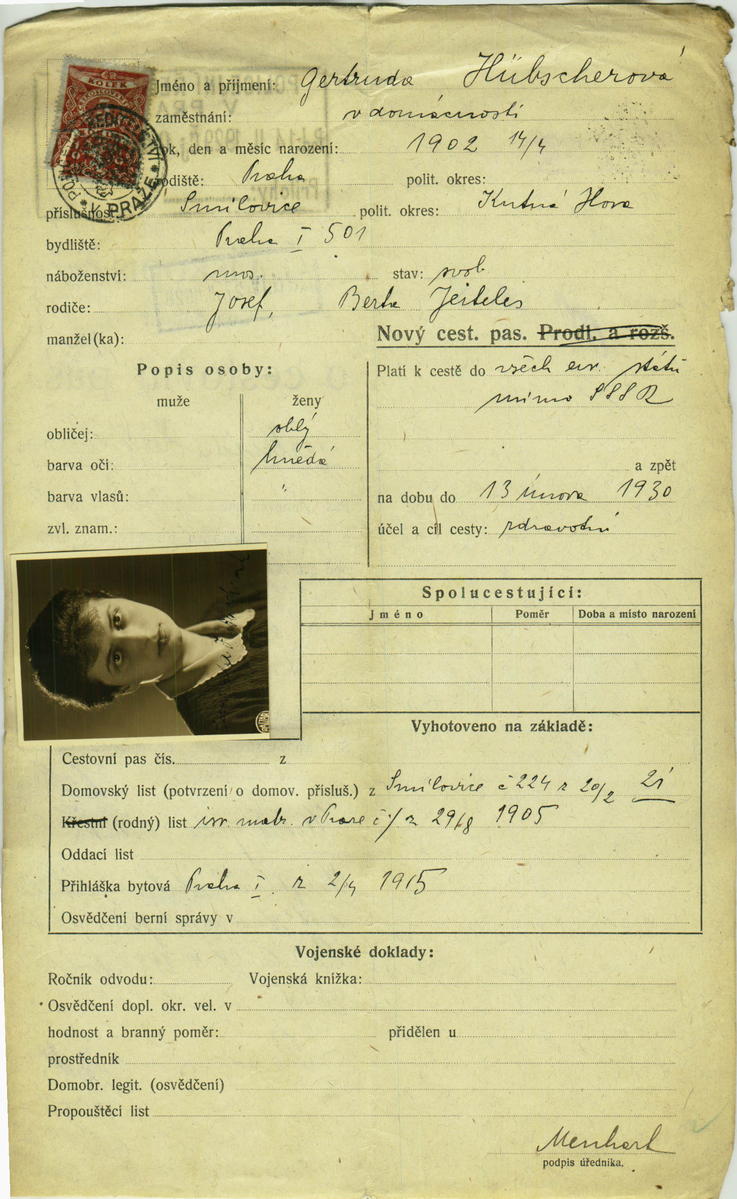 KOLEK
POL. ŘEDITELSTVÍ * V PRAZE *
Jméno a přijmení: Gertruda Hübscherová
zaměstnání: v domácnosti
rok, den a měsíc narození: 1902 14/4
rodiště: Praha polit. okres:
příslušnost: Smilovice polit. okres: Kutná Hora
bydliště: Praha I 501
náboženství: mos. stav: svob
rodiče: Josef, Berta Jeiteles
manžel(ka):
Nový cest. pas. Prodl. a rozš.
Popis osoby:
muže ženy
obličej: oblý
barva očí: hnědá
barva vlasů: "
zvl. znam.:
Platí k cestě do všech evr. států
mimo SSSR
a zpět
na dobu do 13 února 1930
účel a cíl cesty: zdravotní
Spolucestující:
Jméno Poměr Doba a místo narození
Vyhotoveno na základě:
Cestovní pas čís. z
Domovský list (potvrzení o domov. přísluš.) z Smilovice č 224 z 20/2 21
Křestní (rodný) list isr. matr. v Praze č / z 29/8 1905
Oddací list
Přihláška bytová Praha I. z 2/4 1915
Osvědčení berní správy v
Vojenské doklady:
Ročník odvodu: Vojenská knížka:
Osvědčení dopl. okr. vel. v
hodnost a branný poměr: přidělen u
prostředník
Domobr. legit. (osvědčení)
Propouštěcí list
Menhart
podpis úředníka.